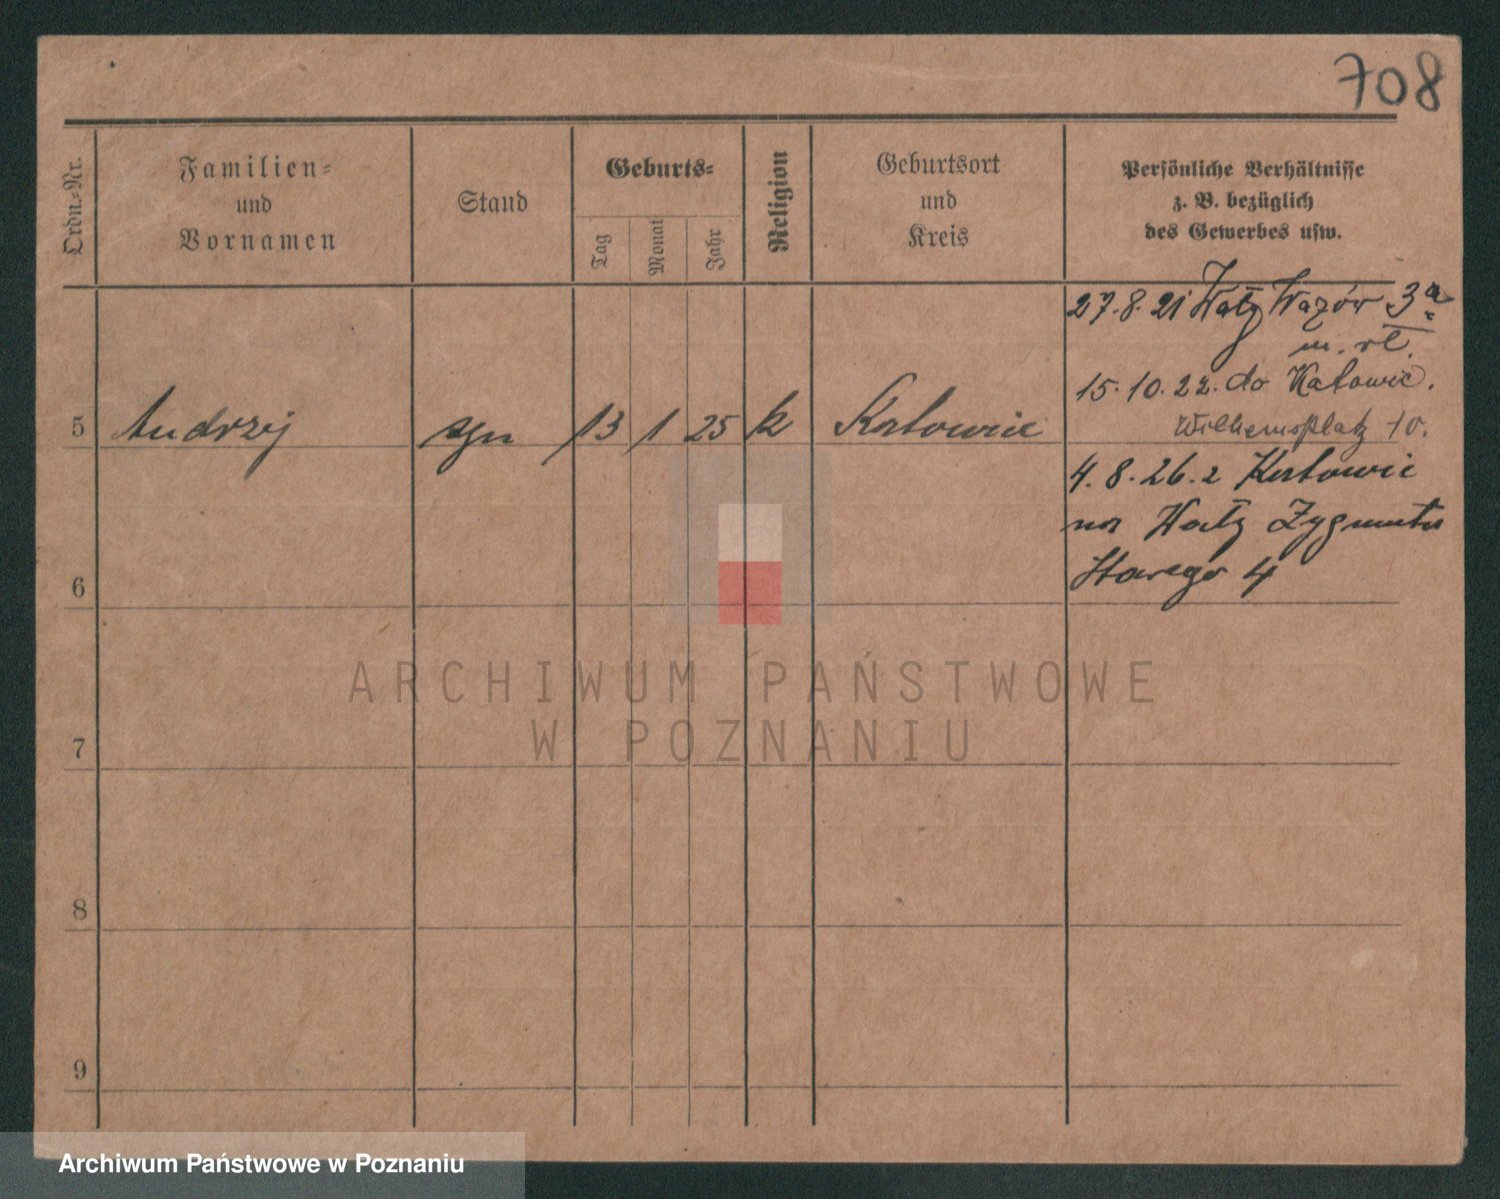 708
Ordn.-Nr.
Familien-
und
Vornamen
Stand
Geburts-
Tag
Monat
Jahr
Religion
Geburtsort
und
Kreis
Persönliche Verhältnisse
z. B. bezüglich
des Gewerbes usw.
27.8.21 Wały Wazów 3a
15.10.22. do Katowic.
Wilhemsplatz 10.
5 Andrzej syn 13 1 25 k Katowice
4.8.26. z Katowic
na Wały Zygmunta
Starego 4
6
ARCHIWUM PAŃSTWOWE
W POZNANIU
7
8
9
Archiwum Państwowe w Poznaniu